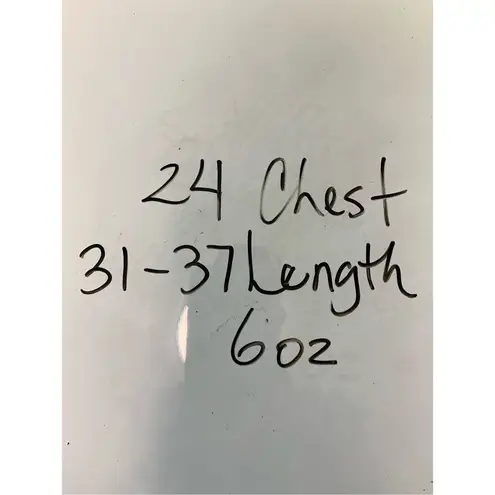 24 Chest
31-37 Length
6oz